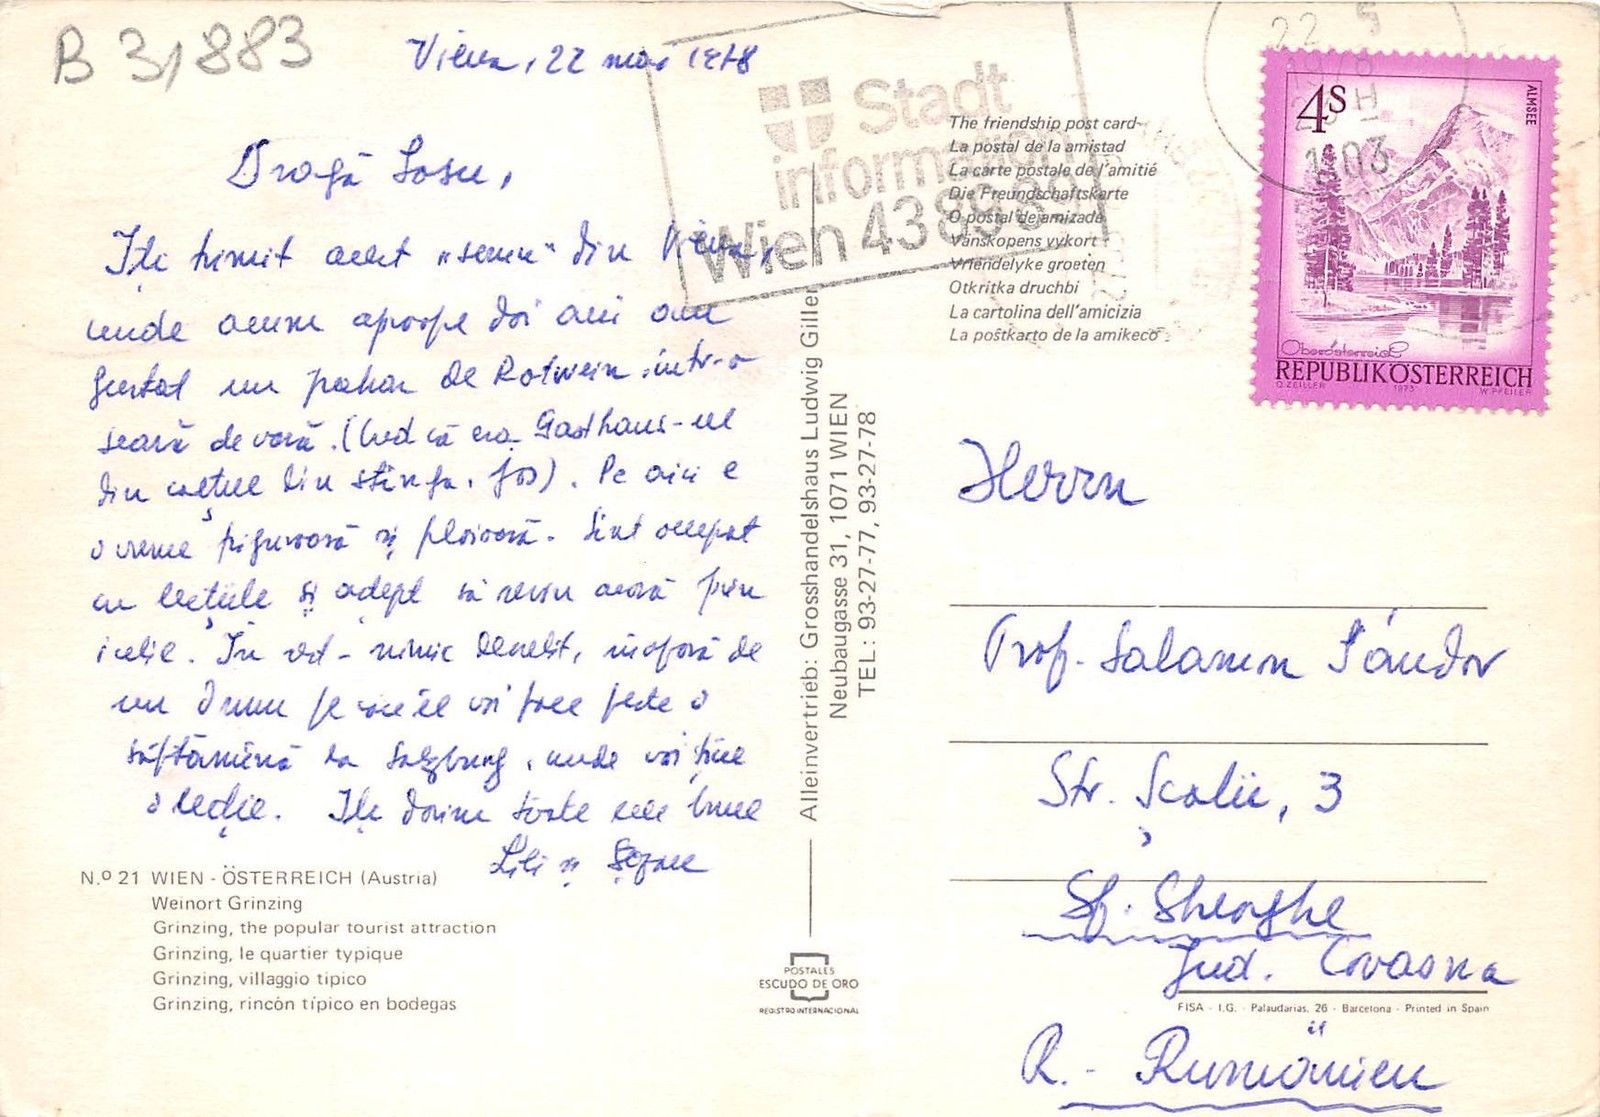 B 31883
Viena, 22 mai 1978
Dragă Sosu,
Îți trimit acest „semn“ din Viena,
unde acum aproape doi ani am
gustat un pahar de Rotwein într-o
seară de vară. (Cred că era Gasthaus-ul
din colțul din stînga, jos). Pe aici e
o vreme friguroasă și ploioasă. Sînt ocupat
cu lecțiile și aștept să revin acasă prin
iulie. În rest - nimic deosebit, în afară de
un drum pe care îl voi face peste o
săptămînă la Salzburg, unde voi ține
o lecție. Îți doresc toate cele bune
Lili și
N.º 21 WIEN - ÖSTERREICH (Austria)
Weinort Grinzing
Grinzing, the popular tourist attraction
Grinzing, le quartier typique
Grinzing, villaggio tipico
Grinzing, rincón típico en bodegas
Alleinvertrieb: Grosshandelshaus Ludwig Giller
Neubaugasse 31, 1071 WIEN
TEL: 93-27-77, 93-27-78
POSTALES
ESCUDO DE ORO
REGISTRO INTERNACIONAL
Stadt
information
Wien 43 89 89
The friendship post card
La postal de la amistad
La carte postale de l'amitié
Die Freundschaftskarte
O postal dejamizada
Vanskopens vykort
Vriendelyke groeten
Otkritka druchbi
La cartolina dell'amicizia
La poŝtkarto de la amikeco
22 5
1978
1103
4S
ALMSEE
Oberösterreich
REPUBLIK ÖSTERREICH
O. ZEILLER 1973 W. PFEILER
Herrn
Prof. Salamon Sándor
Str. Școlii, 3
Sf. Gheorghe
Jud. Covasna
FISA - I.G. - Palaudarias, 26 - Barcelona - Printed in Spain
R. - Rumänien